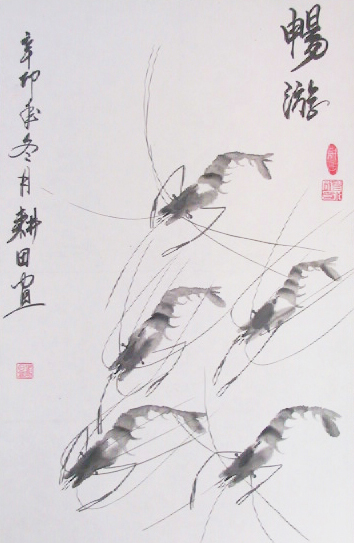 暢游
辛卯年冬月耕田畫